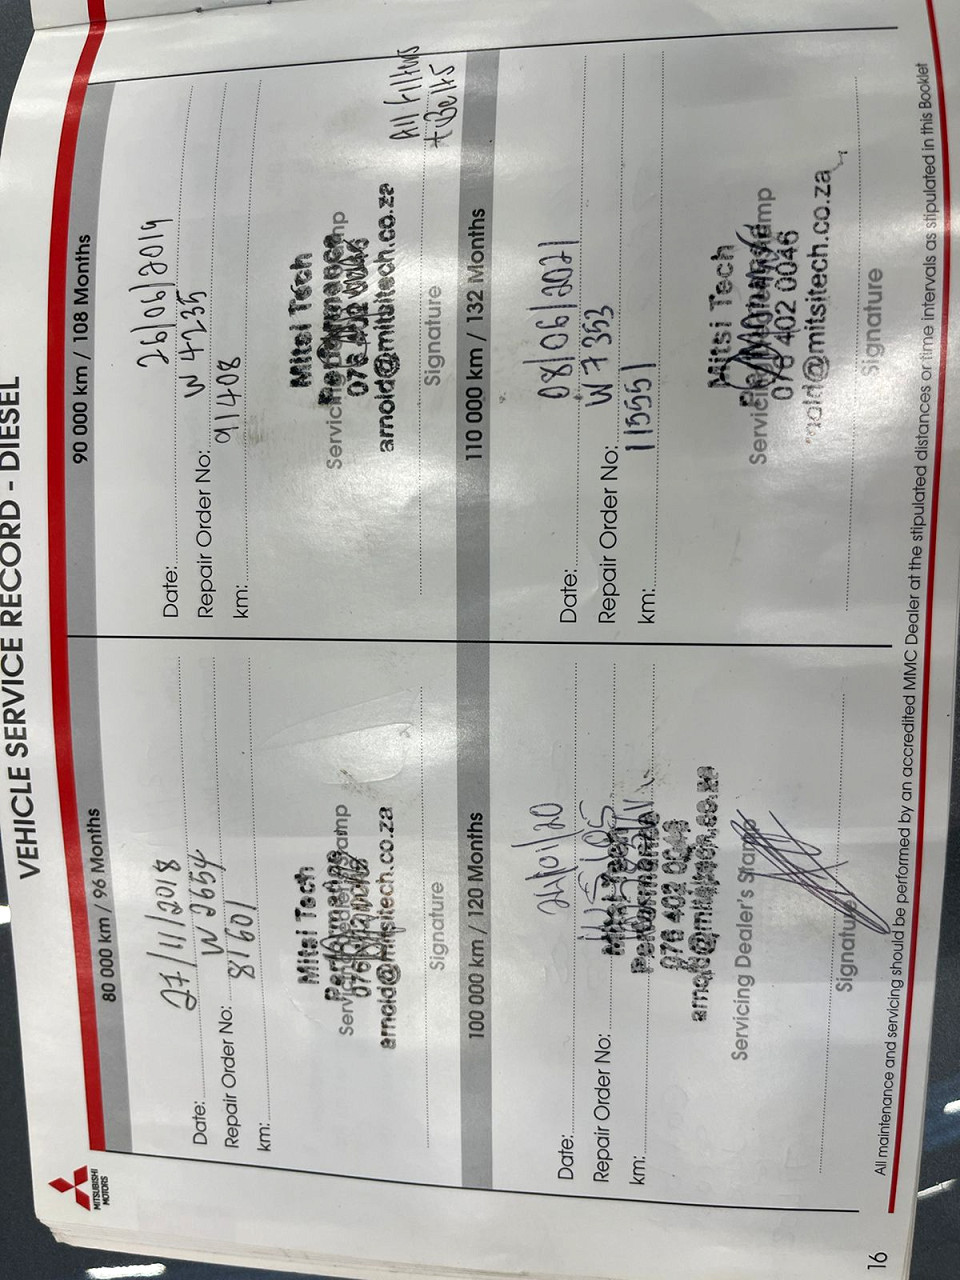 VEHICLE SERVICE RECORD - DIESEL
MITSUBISHI
MOTORS
80 000 km / 96 Months
Date: 27/11/2018
Repair Order No: W 2654
km: 81601
Mitsi Tech
Performance
arnold@mitsitech.co.za
Signature
90 000 km / 108 Months
Date: 26/06/2019
Repair Order No: W 4235
km: 91408
Mitsi Tech
Performance
076 402 0046
arnold@mitsitech.co.za
Signature
All Filters
+ Belts
100 000 km / 120 Months
Date:
Repair Order No:
km:
Mitsi Tech
Performance
076 402 0046
arnold@mitsitech.co.za
Servicing Dealer's Stamp
Signature
110 000 km / 132 Months
Date: 08/06/2021
Repair Order No: W 7353
km: 115551
Mitsi Tech
076 402 0046
arnold@mitsitech.co.za
Signature
All maintenance and servicing should be performed by an accredited MMC Dealer at the stipulated distances or time intervals as stipulated in this Booklet
16